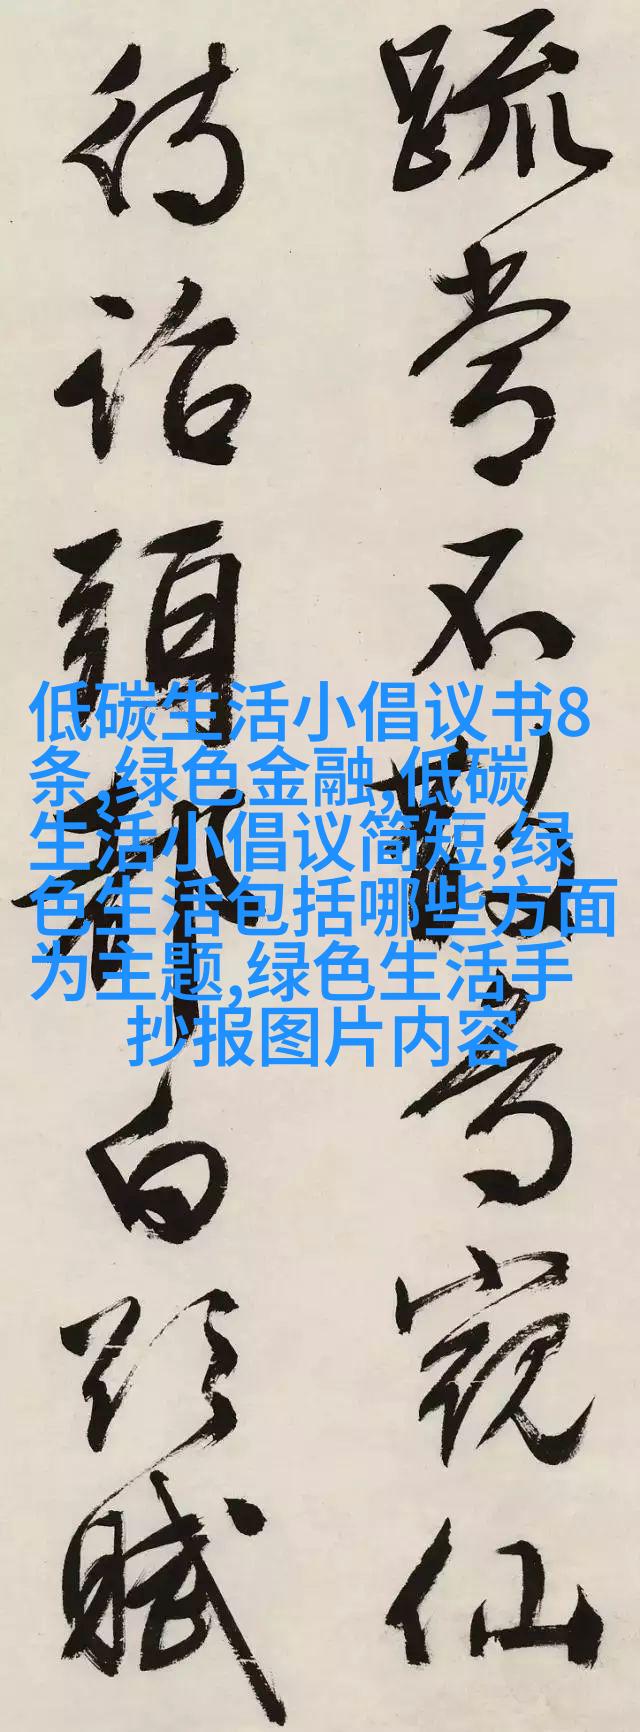 踈常不敢仙
待詔頭都白賦
低碳生活小倡议书8
条,绿色金融,低碳
生活小倡议简短,绿
色生活包括哪些方面
为主题,绿色生活手
抄报图片内容